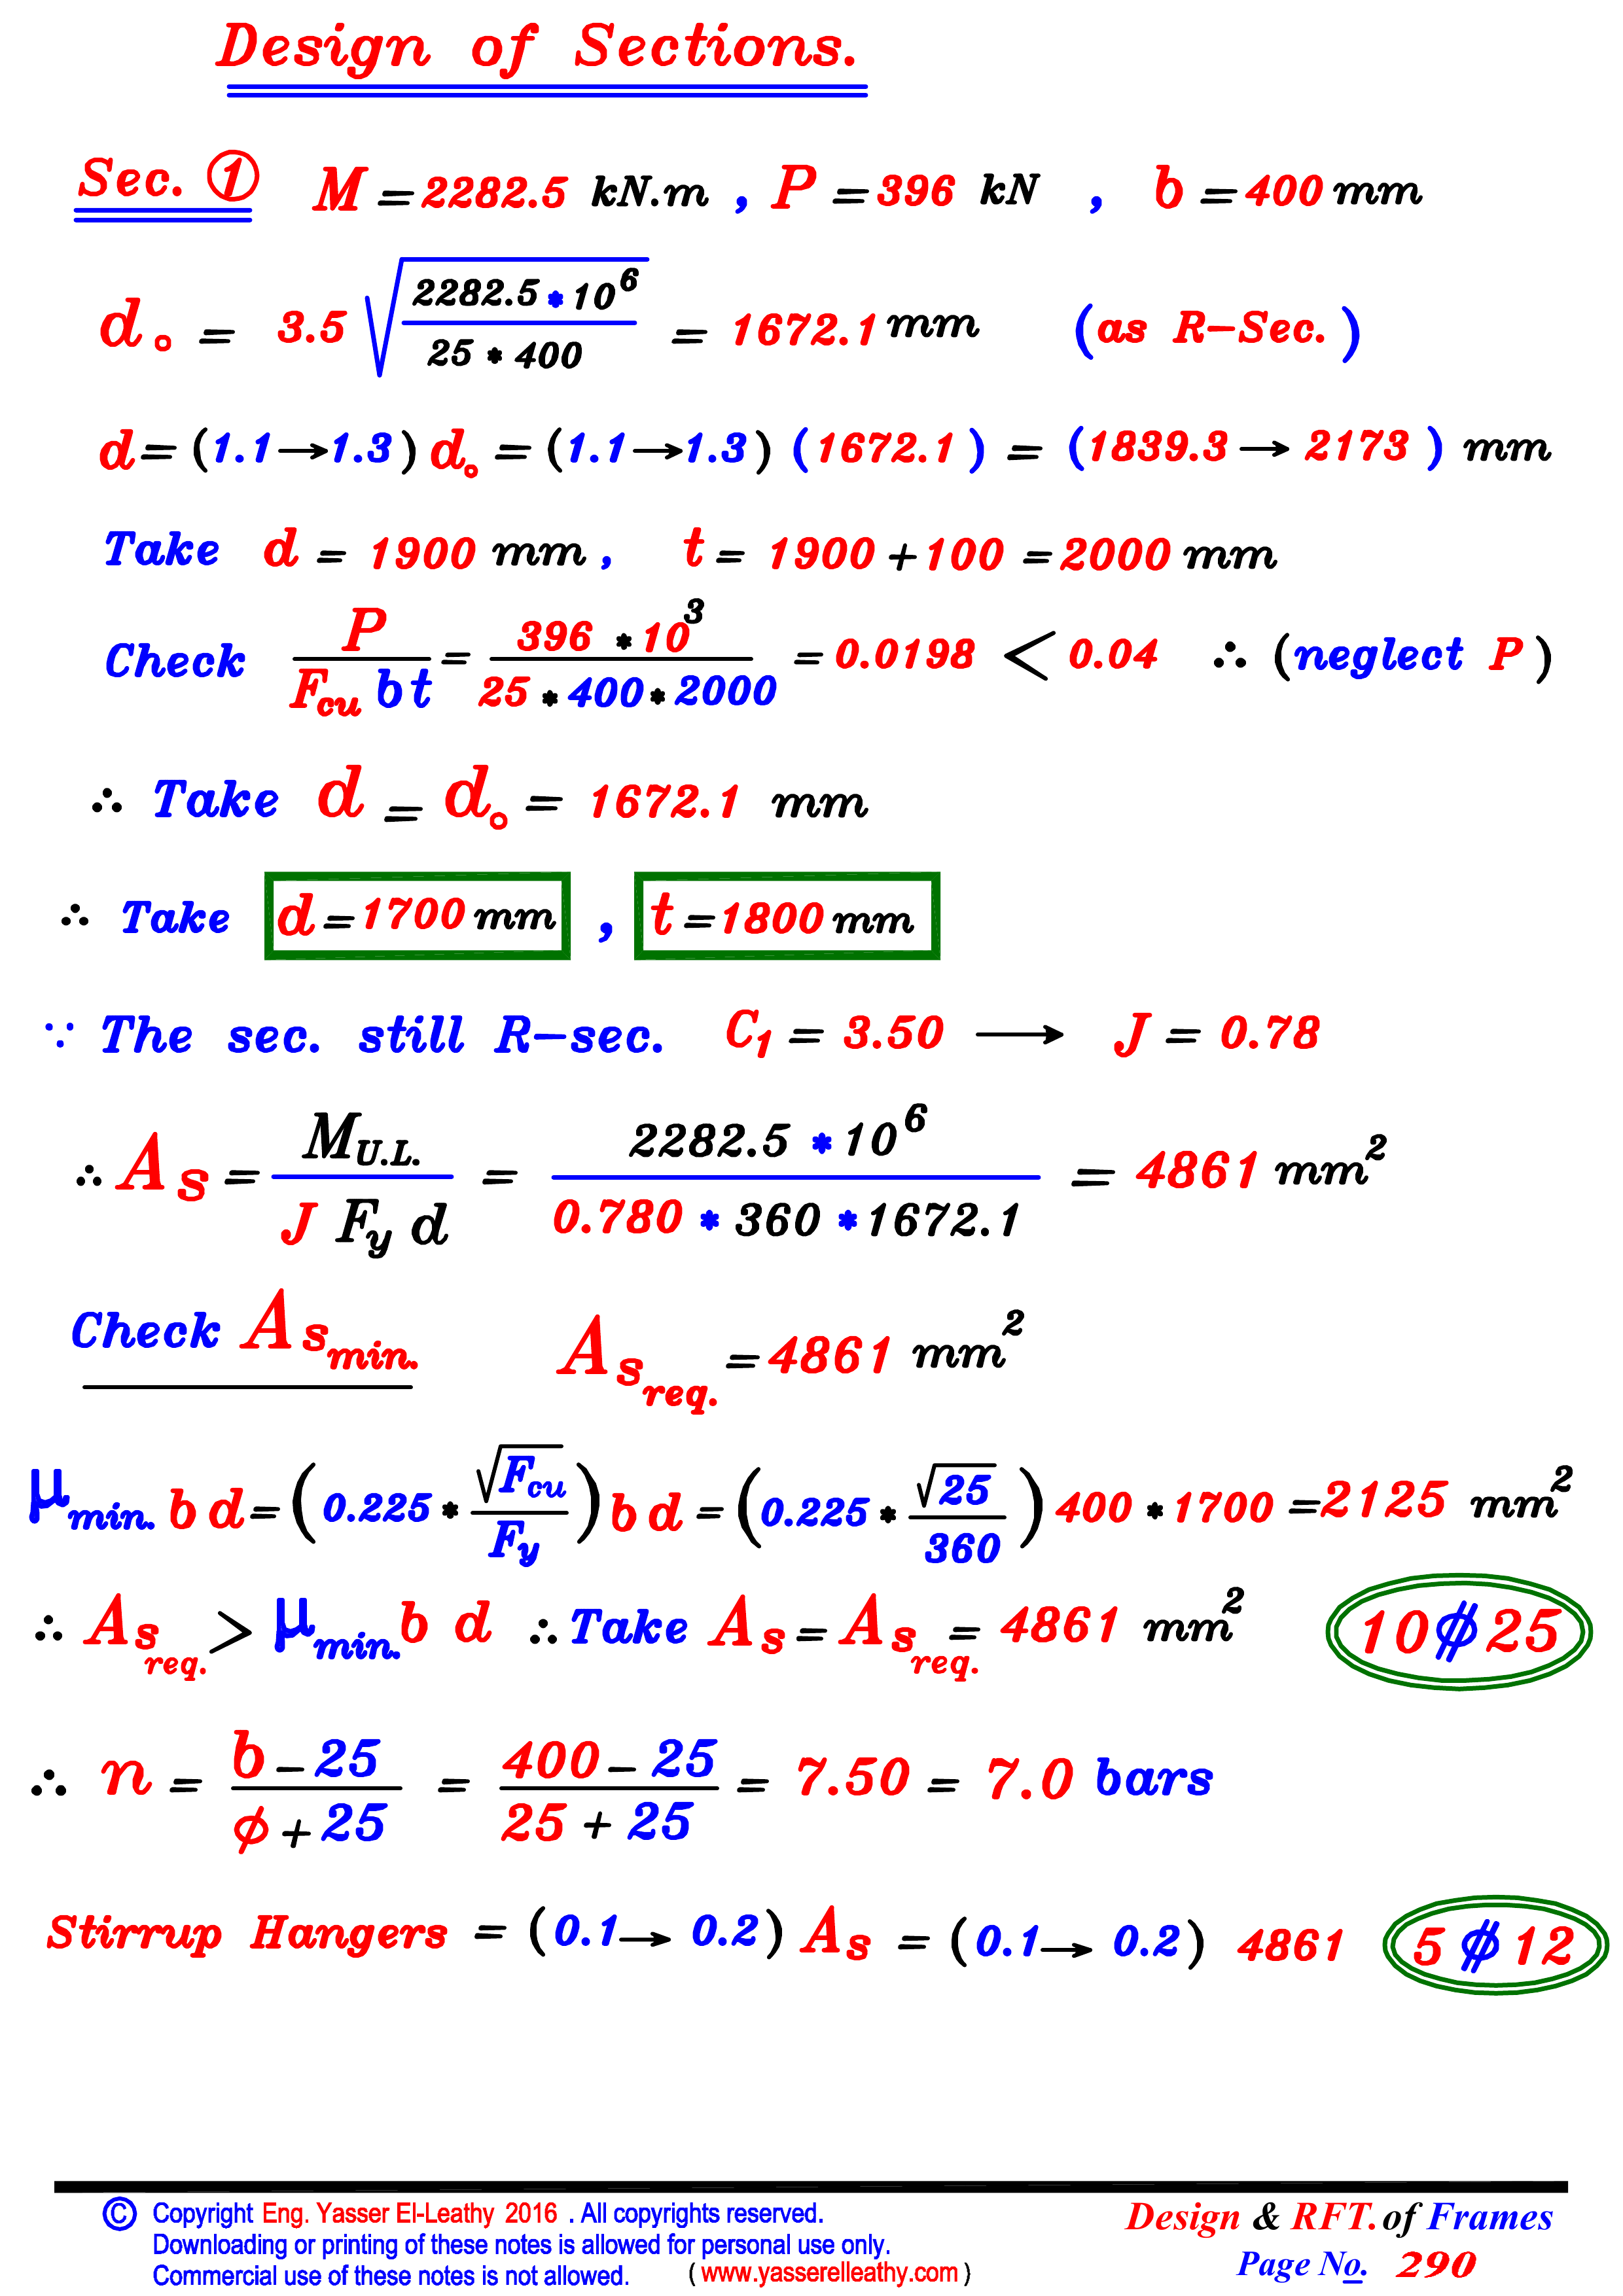 Design of Sections.
Sec. ① M = 2282.5 kN.m , P = 396 kN , b = 400 mm
d₀ = 3.5 √(2282.5 * 10⁶ / 25 * 400) = 1672.1 mm (as R-Sec.)
d = (1.1 → 1.3) d₀ = (1.1 → 1.3) (1672.1) = (1839.3 → 2173) mm
Take d = 1900 mm , t = 1900 + 100 = 2000 mm
Check P / F_cu b t = 396 * 10³ / 25 * 400 * 2000 = 0.0198 < 0.04 ∴ (neglect P)
∴ Take d = d₀ = 1672.1 mm
∴ Take d = 1700 mm , t = 1800 mm
∵ The sec. still R-sec. C₁ = 3.50 → J = 0.78
∴ A_s = M_U.L. / J F_y d = 2282.5 * 10⁶ / 0.780 * 360 * 1672.1 = 4861 mm²
Check A_s min. A_s req. = 4861 mm²
μ_min. b d = (0.225 * √F_cu / F_y) b d = (0.225 * √25 / 360) 400 * 1700 = 2125 mm²
∴ A_s req. > μ_min. b d ∴ Take A_s = A_s req. = 4861 mm² 10 ⌀ 25
∴ n = b - 25 / ϕ + 25 = 400 - 25 / 25 + 25 = 7.50 = 7.0 bars
Stirrup Hangers = (0.1 → 0.2) A_s = (0.1 → 0.2) 4861 5 ⌀ 12
© Copyright Eng. Yasser El-Leathy 2016 . All copyrights reserved.
Downloading or printing of these notes is allowed for personal use only.
Commercial use of these notes is not allowed. ( www.yasserelleathy.com )
Design & RFT. of Frames
Page No. 290